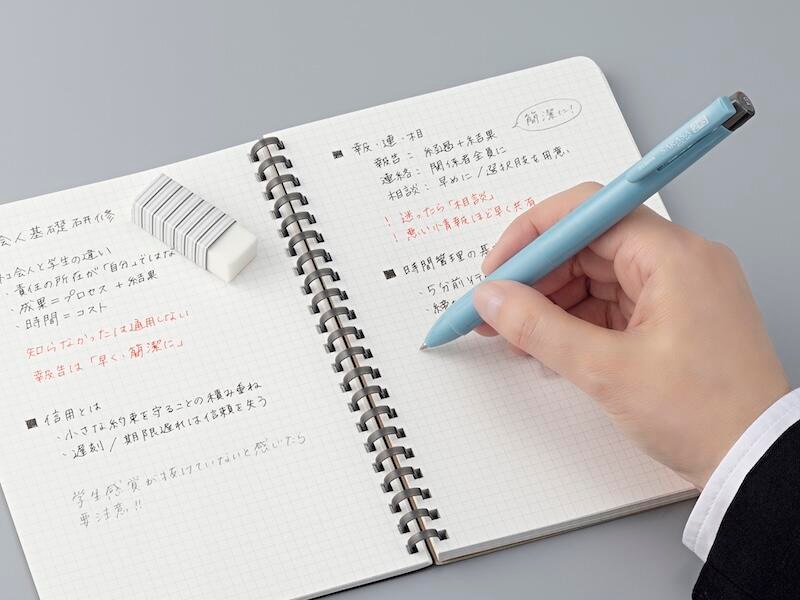 会人基礎研修
社会人と学生の違い
・責任の所在が「自分」
・成果=プロセス+結果
・時間=コスト
知らなかったは通用しない
報告は「早く、簡潔に」
■信用とは
・小さな約束を守ることの積み重ね
・遅刻/期限遅れは信頼を失う
学生感覚が抜けていないと感じたら
要注意!!
簡潔に!
■報・連・相
報告:結論+結果
連絡:関係者全員に
相談:早めに/選択肢を用意
!迷ったら「相談」
!悪い情報ほど早く共有
■時間管理の基
・5分前行